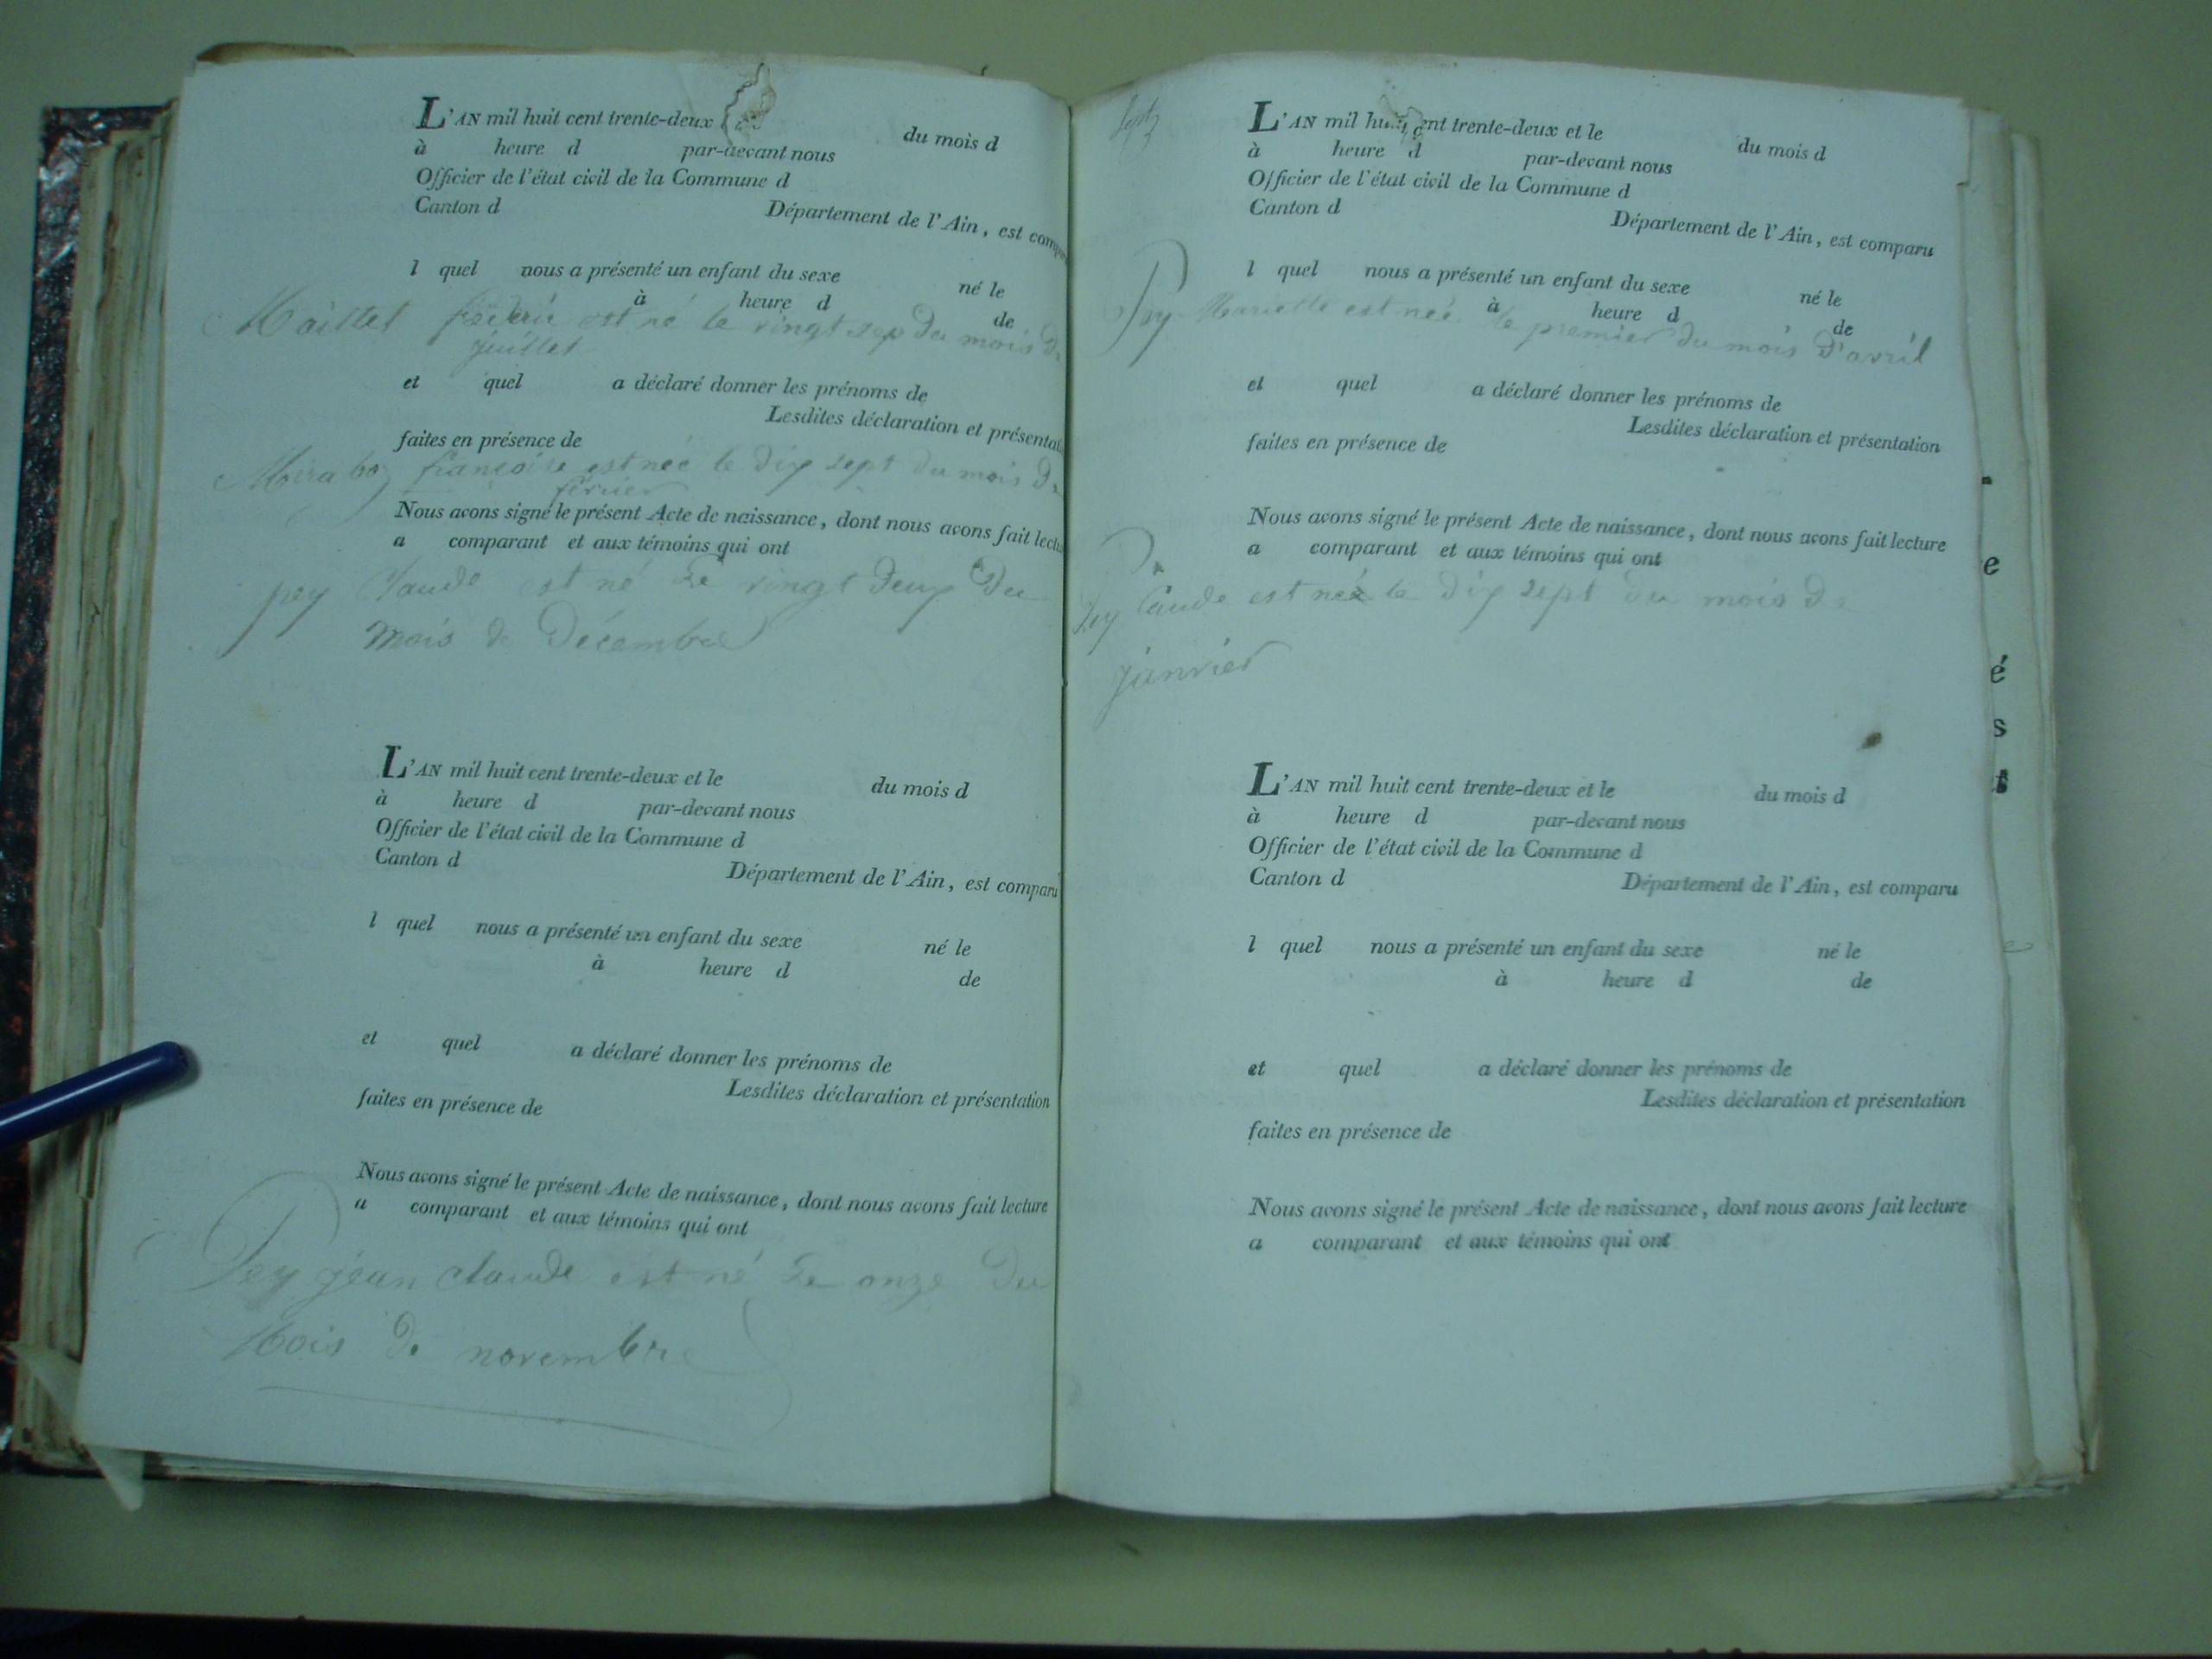 L'AN mil huit cent trente-deux
du mois d
à heure d par-devant nous
Officier de l'état civil de la Commune d
Canton d Département de l'Ain, est
l quel nous a présenté un enfant du sexe né le
à heure d de
Maillet est né le vingt sep du mois de
juillet
et quel a déclaré donner les prénoms de
Lesdites déclaration et
faites en présence de
françoise est neé le dix sept du mois de
Nous avons signé le présent Acte de naissance, dont nous avons fait
a comparant et aux témoins qui ont
pey Claude est né Le vingt deux Du
Mois de Décembre
L'AN mil huit cent trente-deux et le du mois d
à heure d par-devant nous
Officier de l'état civil de la Commune d
Canton d Département de l'Ain, est comparu
l quel nous a présenté un enfant du sexe né le
à heure d de
et quel a déclaré donner les prénoms de
Lesdites déclaration et présentation
faites en présence de
Nous avons signé le présent Acte de naissance, dont nous avons fait lecture
a comparant et aux témoins qui ont
Pey jean claude est né Le onze Du
Mois de novembre
L'AN mil huit cent trente-deux et le du mois d
à heure d par-devant nous
Officier de l'état civil de la Commune d
Canton d Département de l'Ain, est comparu
l quel nous a présenté un enfant du sexe né le
à heure d de
Pey est neé le premier du mois D'avril
et quel a déclaré donner les prénoms de
Lesdites déclaration et présentation
faites en présence de
Nous avons signé le présent Acte de naissance, dont nous avons fait lecture
a comparant et aux témoins qui ont
Pey Claude est né le dix sept du mois de
janvier
L'AN mil huit cent trente-deux et le du mois d
à heure d par-devant nous
Officier de l'état civil de la Commune d
Canton d Département de l'Ain, est comparu
l quel nous a présenté un enfant du sexe né le
à heure d de
et quel a déclaré donner les prénoms de
Lesdites déclaration et présentation
faites en présence de
Nous avons signé le présent Acte de naissance, dont nous avons fait lecture
a comparant et aux témoins qui ont